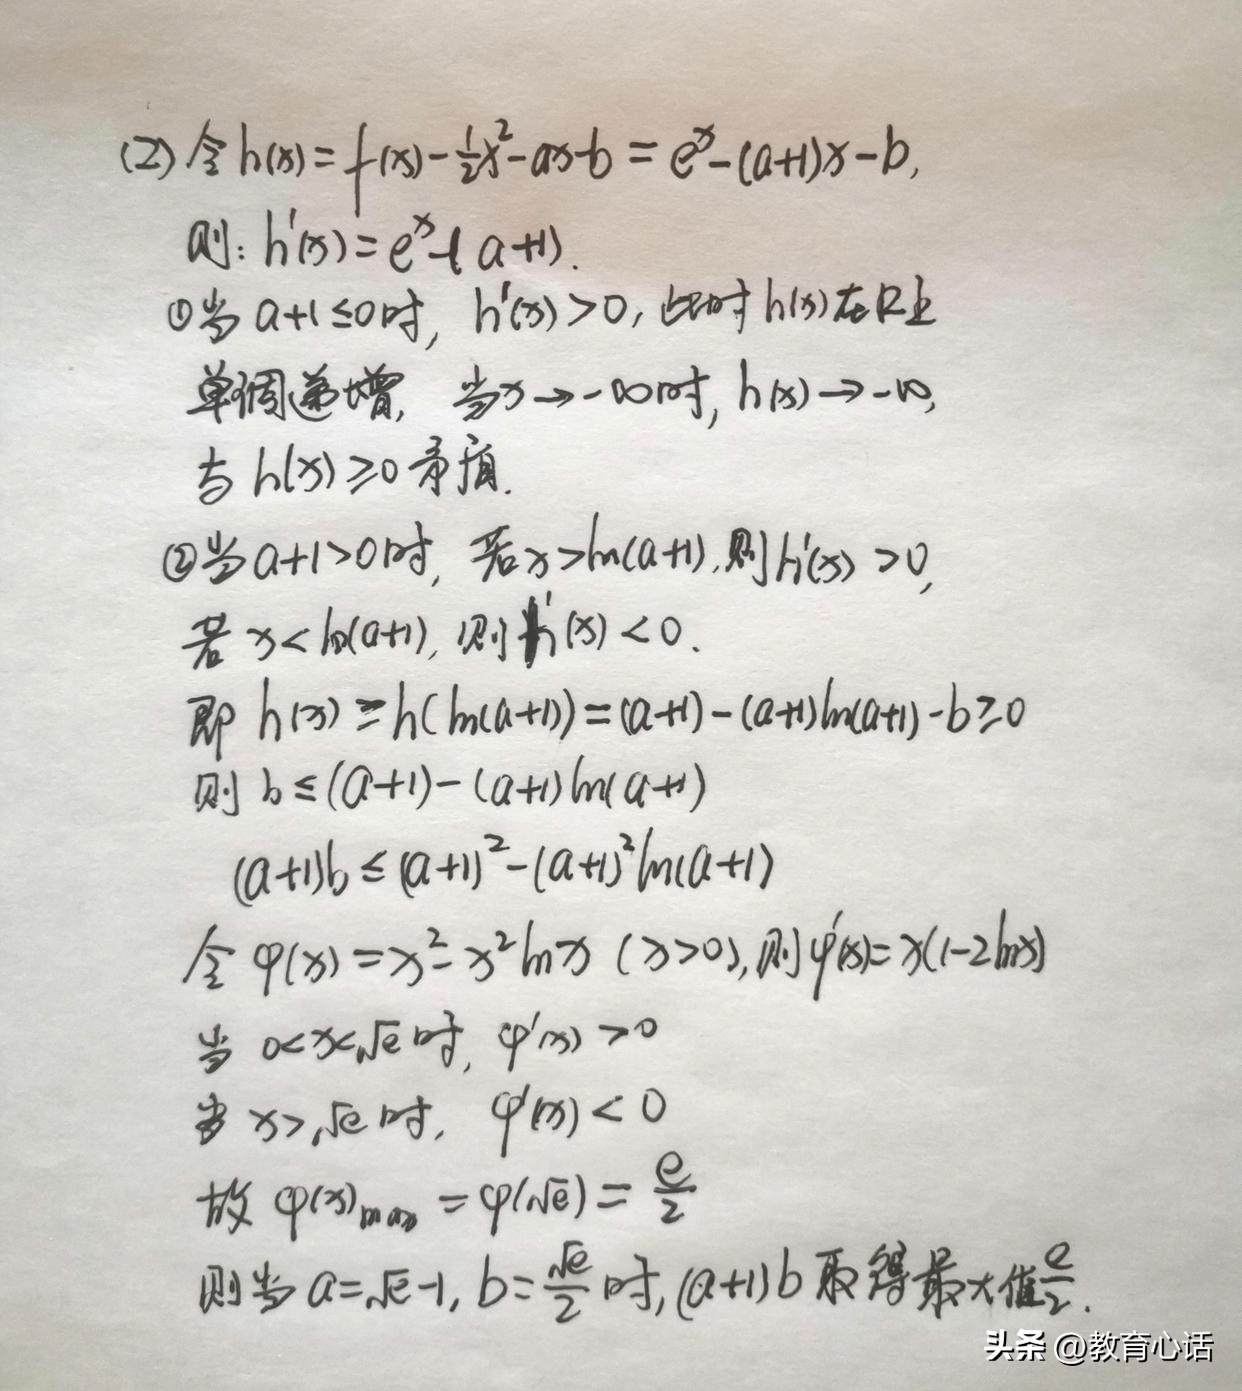 (2) 令 h(x) = f(x) - ½x² - ax - b = eˣ - (a+1)x - b,
则: h'(x) = eˣ - (a+1).
①当 a+1≤0时, h'(x)>0, 此时 h(x)在R上
单调递增, 当x→-∞时, h(x)→-∞,
与 h(x)≥0 矛盾.
②当 a+1>0时, 若x>ln(a+1), 则h'(x)>0,
若 x<ln(a+1), 则 h'(x)<0.
即 h(x) ≥ h(ln(a+1)) = (a+1) - (a+1)ln(a+1) - b≥0
则 b≤(a+1) - (a+1)ln(a+1)
(a+1)b ≤ (a+1)² - (a+1)²ln(a+1)
令 φ(x) = x² - x²lnx (x>0), 则φ'(x) = x(1-2lnx)
当 0<x<√e时, φ'(x) >0
当 x>√e时, φ'(x) < 0
故 φ(x)max = φ(√e) = e/2
则当 a=√e-1, b=√e/2 时, (a+1)b 取得最大值e/2.
头条 @教育心话